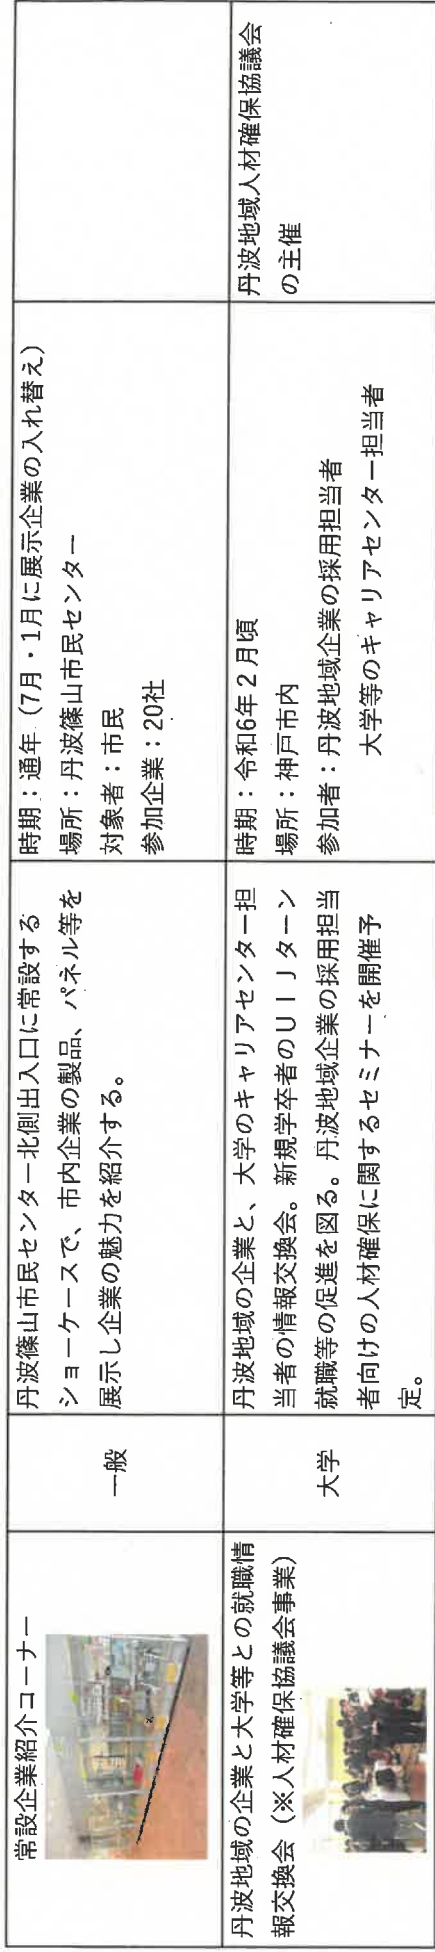 常設企業紹介コーナー
一般
丹波篠山市民センター北側出入口に常設する
ショーケースで、市内企業の製品、パネル等を
展示し企業の魅力を紹介する。
時期：通年（7月・1月に展示企業の入れ替え）
場所：丹波篠山市民センター
対象者：市民
参加企業：20社
丹波地域の企業と大学等との就職情
報交換会（※人材確保協議会事業）
大学
丹波地域の企業と、大学のキャリアセンター担
当者の情報交換会。新規学卒者のＵＩＪターン
就職等の促進を図る。丹波地域企業の採用担当
者向けの人材確保に関するセミナーを開催予
定。
時期：令和6年２月頃
場所：神戸市内
参加者：丹波地域企業の採用担当者
大学等のキャリアセンター担当者
丹波地域人材確保協議会
の主催